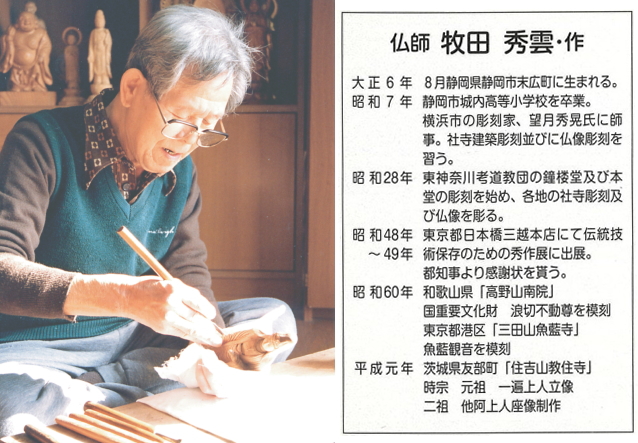 仏師 牧田 秀雲・作
大正6年 8月静岡県静岡市末広町に生まれる。
昭和7年 静岡市城内高等小学校を卒業。
横浜市の彫刻家、望月秀晃氏に師
事。社寺建築彫刻並びに仏像彫刻を
習う。
昭和28年 東神奈川考道教団の鐘楼堂及び本
堂の彫刻を始め、各地の社寺彫刻及
び仏像を彫る。
昭和48年 東京都日本橋三越本店にて伝統技
～49年 術保存のための秀作展に出展。
都知事より感謝状を貰う。
昭和60年 和歌山県「高野山南院」
国重要文化財 浪切不動尊を模刻
東京都港区「三田山魚藍寺」
魚藍観音を模刻
平成元年 茨城県友部町「住吉山教住寺」
時宗 元祖 一遍上人立像
二祖 他阿上人座像制作